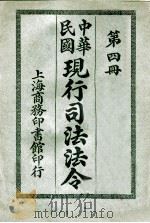 第四冊
中華
民國
現行司法法令
上海商務印書館印行